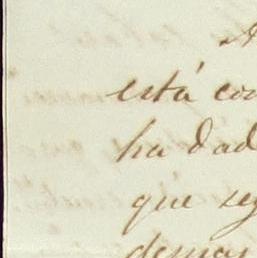 A
está con
ha dad
que seg
demas